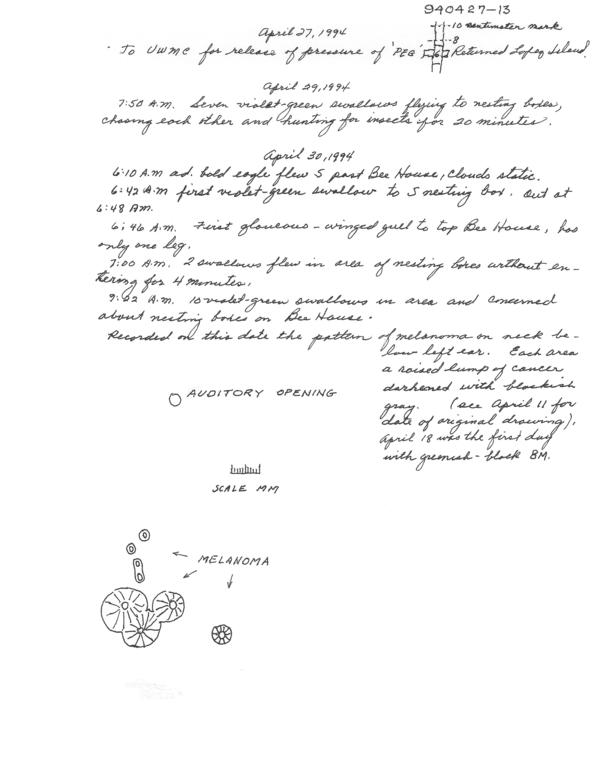 940427-13
April 27, 1994
10 centimeter mark
8
To UWMC for release of pressure of 'PEG' 6 Returned Lopez Island.
April 29, 1994
7:50 A.M. Seven violet-green swallows flying to nesting boxes,
chasing each other and hunting for insects for 20 minutes.
April 30, 1994
6:10 A.M ad. bald eagle flew S past Bee House, clouds static.
6:42 A.M first violet-green swallow to S nesting box. Out at
6:48 AM.
6:46 A.M. First glaucous-winged gull to top Bee House, has
only one leg.
7:00 A.M. 2 swallows flew in area of nesting boxes without en-
tering for 4 minutes.
9:22 A.M. 10 violet-green swallows in area and concerned
about nesting boxes on Bee House.
Recorded on this date the pattern of melanoma on neck be-
low left ear. Each area
a raised lump of cancer
darkened with blackish
gray. (see April 11 for
date of original drawing).
April 18 was the first day
with greenish-black BM.
AUDITORY OPENING
SCALE MM
MELANOMA